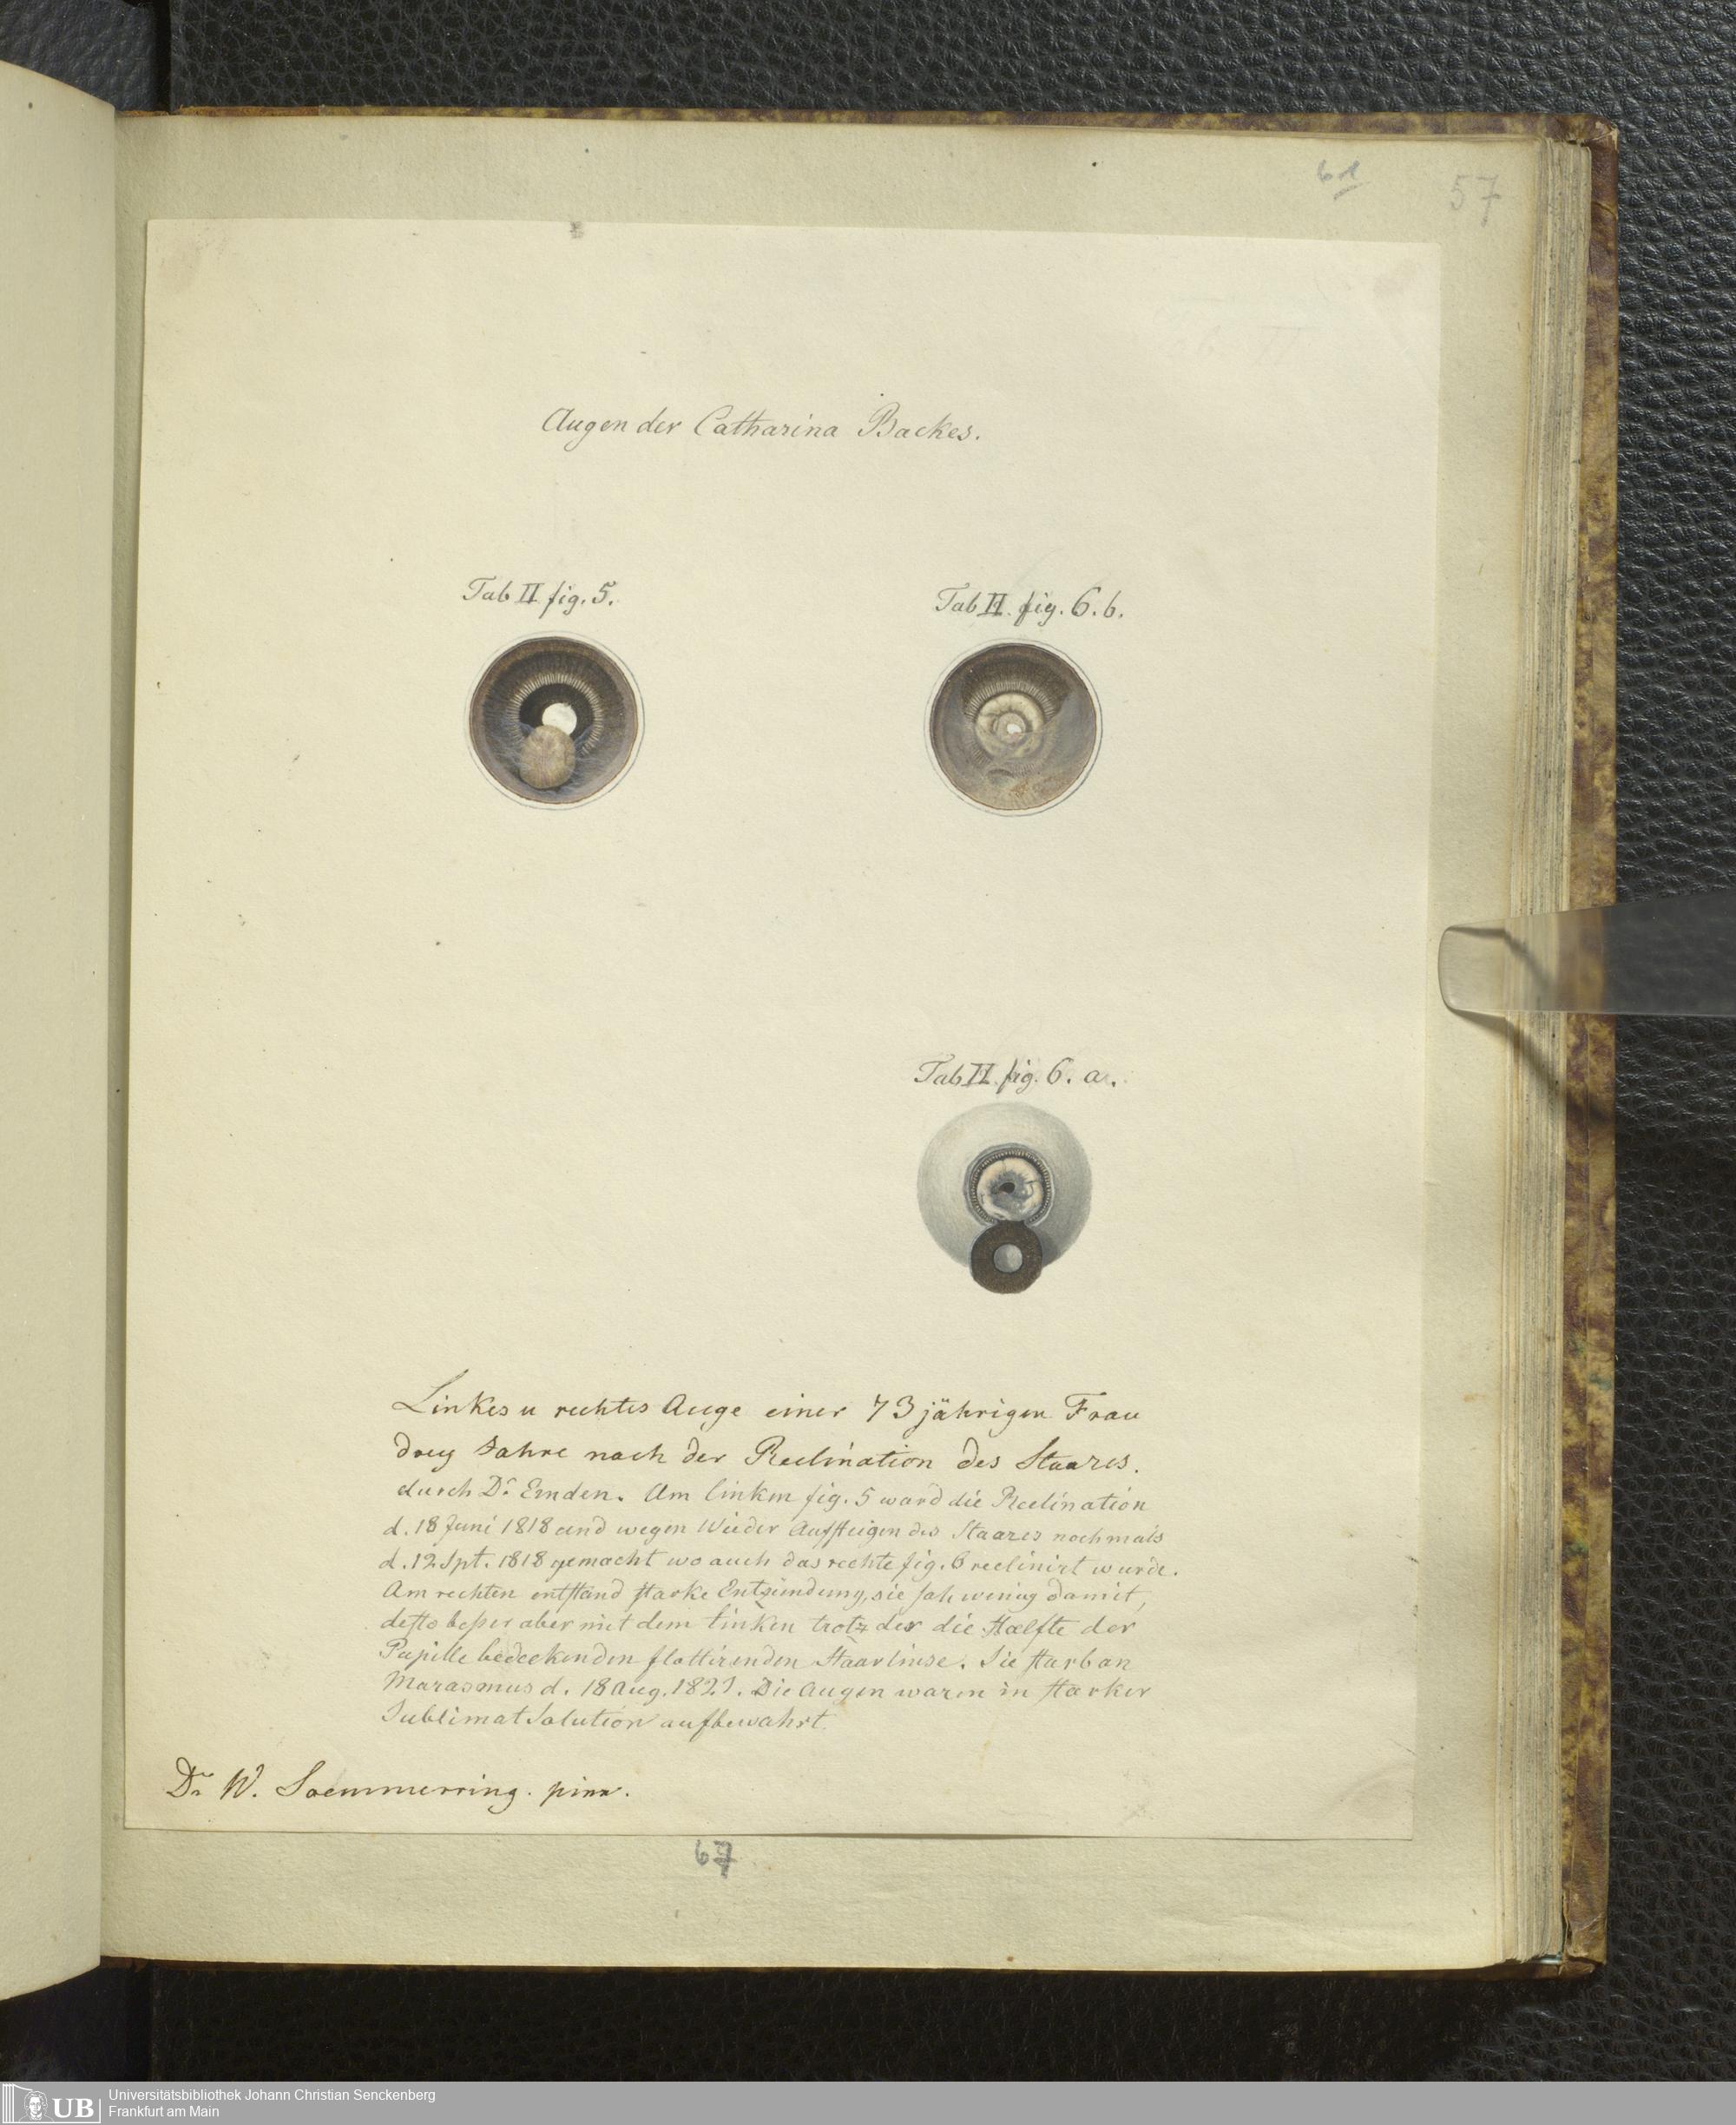 61
57
Augen der Catharina Backes.
Tab II fig. 5.
Tab II. fig. 6. b.
Tab II. fig. 6. a.
Linkes u rechtes Auge einer 73 jährigen Frau
drey Jahre nach der Reclination des Staares.
durch Dr. Emden. Am linken fig. 5 ward die Reclination
d. 18 Juni 1818 und wegen Wieder Aufsteigen des Staares nochmals
d. 12 Spt. 1818 gemacht wo auch das rechte fig. 6 reclinirt wurde.
Am rechten entstand starke Entzündung, sie sah wenig damit,
desto beßer aber mit dem linken trotz der die Hælfte der
Pupille bedeckenden flottirenden Staarlinse. Sie starb an
Marasmus d. 18 Aug. 1821. Die Augen waren in starker
Sublimat Solution aufbewahrt.
Dr. W. Soemmerring. pinx.
67
UB
Universitätsbibliothek Johann Christian Senckenberg
Frankfurt am Main